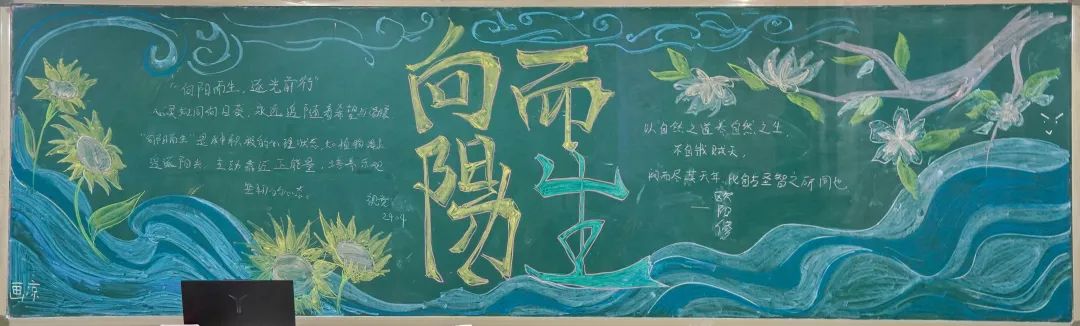 "向阳而生,逐光前行"
向日葵,永远追随着希望与
"向阳而生"是一种积极的心理状态,如植物
阳光,主动靠近正能量,培养乐观
坚韧的心态。
2404
向
阳
而
生
以自然之道养自然之生,
不自戕贼夭,
而尽其天年,此自古圣智之所同也
——欧阳修
画:凉